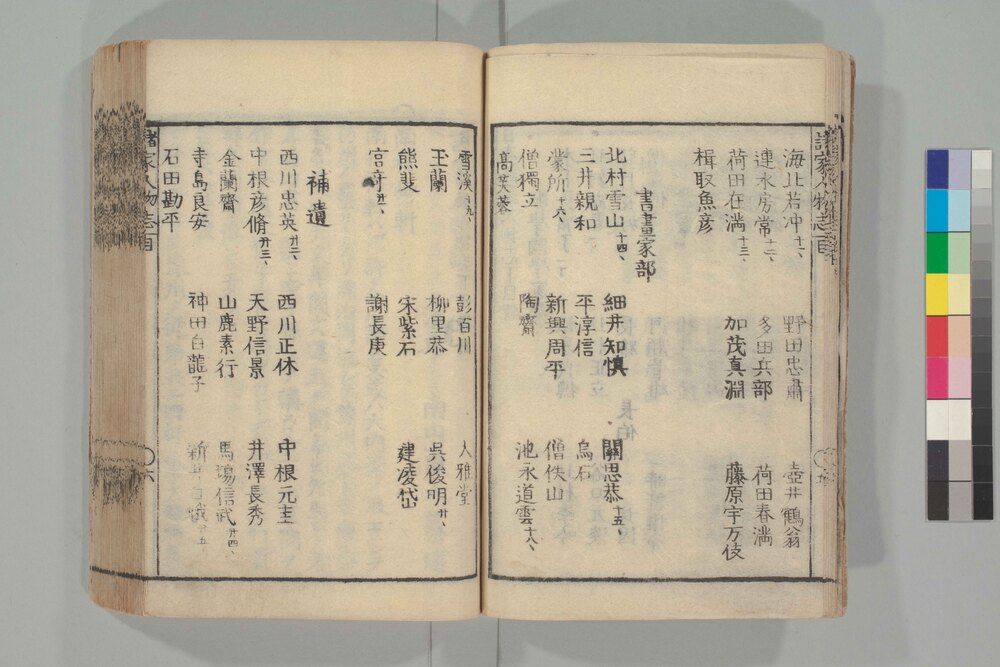 海北若冲十一、 野田忠肅 壺井鶴翁
連水房常十二、 多田兵部 荷田春満
荷田在満十三、 加茂真淵 藤原宇万伎
楫取魚彦
書畫家部
北村雪山十四、 細井知慎 關思恭十五、
三井親和 平淳信 烏石
蒙所十六、 新興周平 僧佚山
僧獨立 陶齋 池永道雲十八、
高芙蓉
雪溪十九、 彭百川 人雅堂
玉蘭 柳里恭 呉俊明廾、
熊斐 宋紫石 建凌岱
宮 廾一、 謝長庚
補遺
西川忠英廾二、 西川正休 中根元圭
中根彦脩廾三、 天野信景 井澤長秀
金蘭齋 山鹿素行 馬場信武廾四、
寺島良安 神田白龍子 新井白蛾廾五
石田勘平
諸家人物志 目